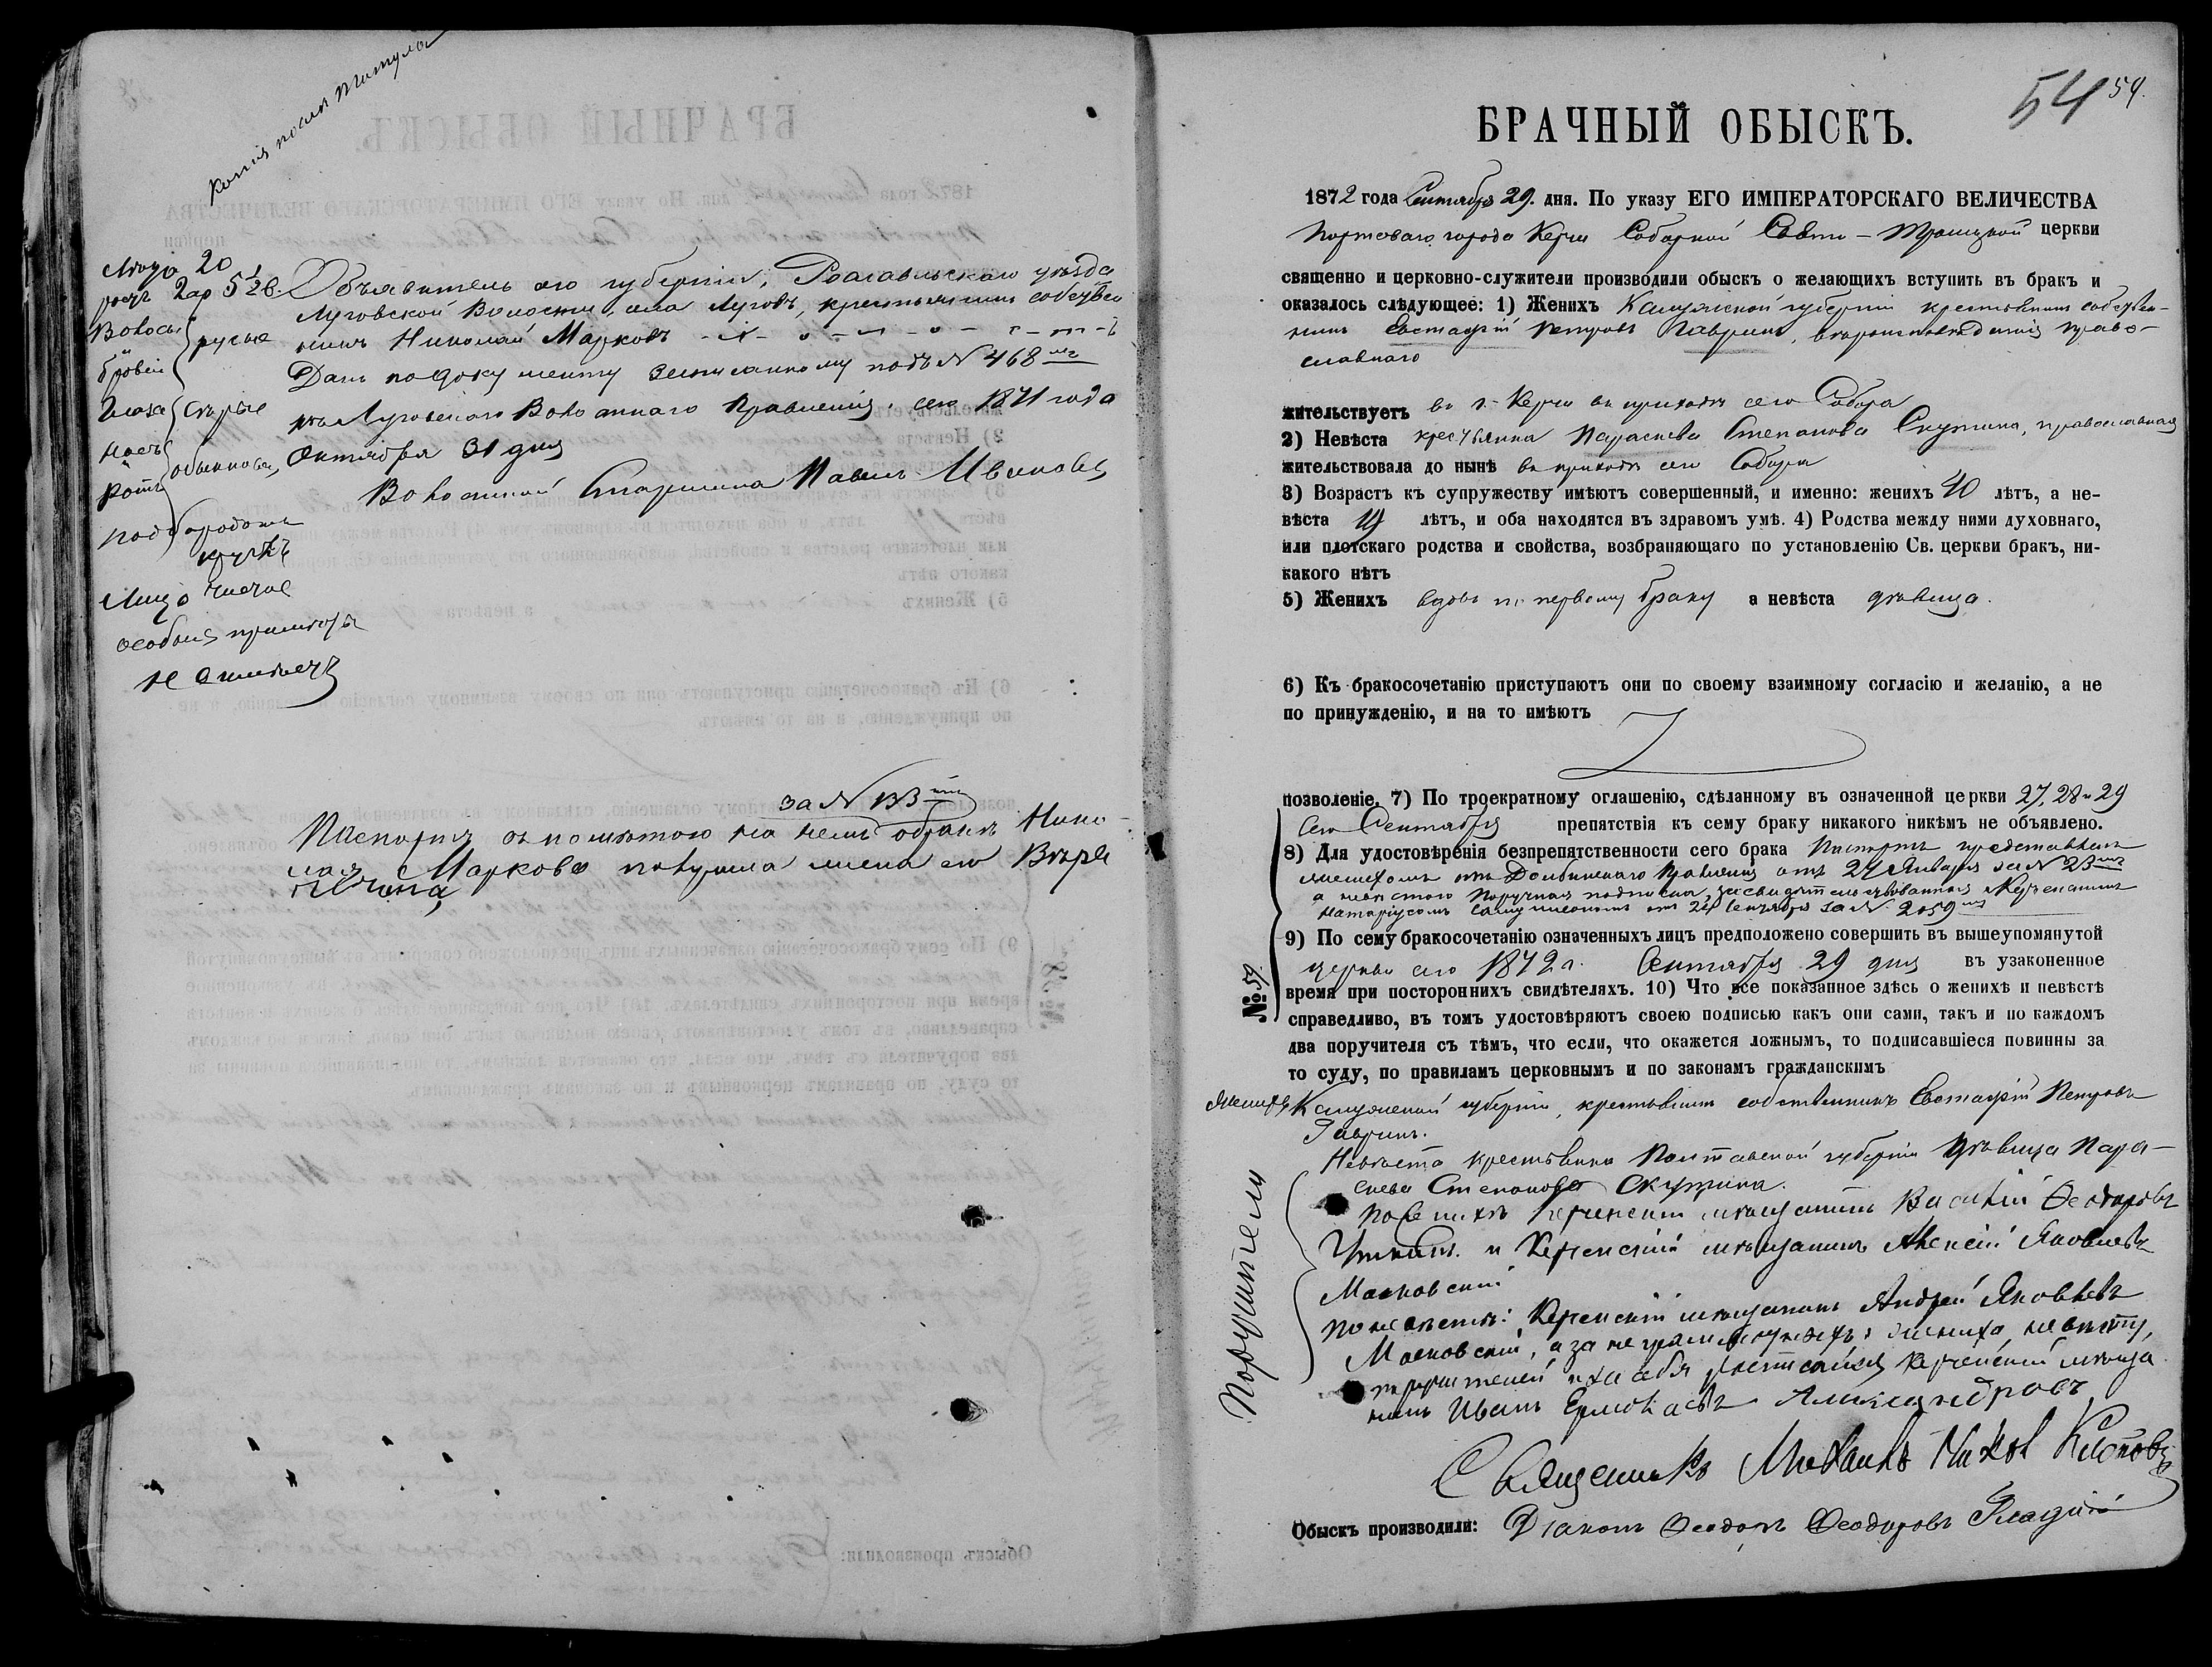 копія послѣ титула
20
ростъ 2 ар 5 1/2 в.
Волосы
брови
русые
Глаза
сѣрые
носъ
ротъ
обыкновен,
подбородокъ
круглъ
Лицо чистое
особыя примѣты
не имѣетъ
Объявитель сего губерніи, Рославльскаго уѣзда
Луговской Волости, села крестьянинъ собствен
никъ Николай Марковъ
Данъ по документу записанному подъ N 468
Луговскаго Волостнаго Правленія. сего 1871 года
Октября 31 дня
Волостной Старшина Павелъ Ивановъ
за N
Паспортъ съ помѣтою на немъ о бракѣ Нико-
лая Маркова получила жена его Вѣра
54 54.
БРАЧНЫЙ ОБЫСКЪ.
1872 года Сентября 29. дня. По указу ЕГО ИМПЕРАТОРСКАГО ВЕЛИЧЕСТВА
Портоваго города Керчи Соборной Свято-Троицкой церкви
священно и церковно-служители производили обыскъ о желающихъ вступить въ бракъ и
оказалось слѣдующее: 1) Женихъ Калужской губерніи крестьянинъ собствен-
никъ Евстафій Петровъ Гавринъ, вѣроисповѣданія право-
славнаго
жительствуетъ въ г. Керчи въ приходѣ сего Собора
2) Невѣста крестьянка Параскева Степанова Скутина, православная
жительствовала до нынѣ въ приходѣ сего Собора
3) Возрастъ къ супружеству имѣютъ совершенный, и именно: женихъ 40 лѣтъ, а не-
вѣста 19 лѣтъ, и оба находятся въ здравомъ умѣ. 4) Родства между ними духовнаго,
или плотскаго родства и свойства, возбраняющаго по установленію Св. церкви бракъ, ни-
какого нѣтъ
5) Женихъ вдовъ по первому браку а невѣста дѣвица.
6) Къ бракосочетанію приступаютъ они по своему взаимному согласію и желанію, а не
по принужденію, и на то имѣютъ
позволеніе. 7) По троекратному оглашенію, сдѣланному въ означенной церкви 27, 28 и 29
сего Сентября препятствія къ сему браку никакого никѣмъ не объявлено.
8) Для удостовѣренія безпрепятственности сего брака Паспортъ представленъ
женихомъ отъ Правленія отъ 24 Января за N 23
а невѣстою Поручная подписка, засвидѣтельствованная Керченскимъ
Натаріусомъ отъ 24 Сентября за N. 2059
9) По сему бракосочетанію означенныхъ лицъ предположено совершить въ вышеупомянутой
церкви сего 1872 г. Сентября 29 дня въ узаконенное
время при постороннихъ свидѣтеляхъ. 10) Что все показанное здѣсь о женихѣ и невѣстѣ
справедливо, въ томъ удостовѣряютъ своею подписью какъ они сами, такъ и по каждомъ
два поручителя съ тѣмъ, что если, что окажется ложнымъ, то подписавшіеся повинны за
то суду, по правиламъ церковнымъ и по законамъ гражданскимъ
№ 54
Женихъ Калужской губерніи, крестьянинъ собственникъ Евстафій Петровъ
Гавринъ.
Невѣста крестьянка Полтавской губерніи дѣвица Пара-
скева Степанова Скутина.
Поручители
По женихѣ Керченскій мѣщанинъ Василій Ѳеодоровъ
и Керченскій мѣщанинъ Алексѣй Яковлевъ
Масновскій
по невѣстѣ: Керченскій мѣщанинъ Андрей Яковлевъ
Масновскій, а за неграмотныхъ: жениха, невѣсту,
поручителей и за себя росписался Керченскій мѣща
нинъ Иванъ Ермолаевъ Александровъ
Священникъ Михаилъ
Обыскъ производили: Діаконъ Ѳеодоръ Ѳеодоровъ Гладкій